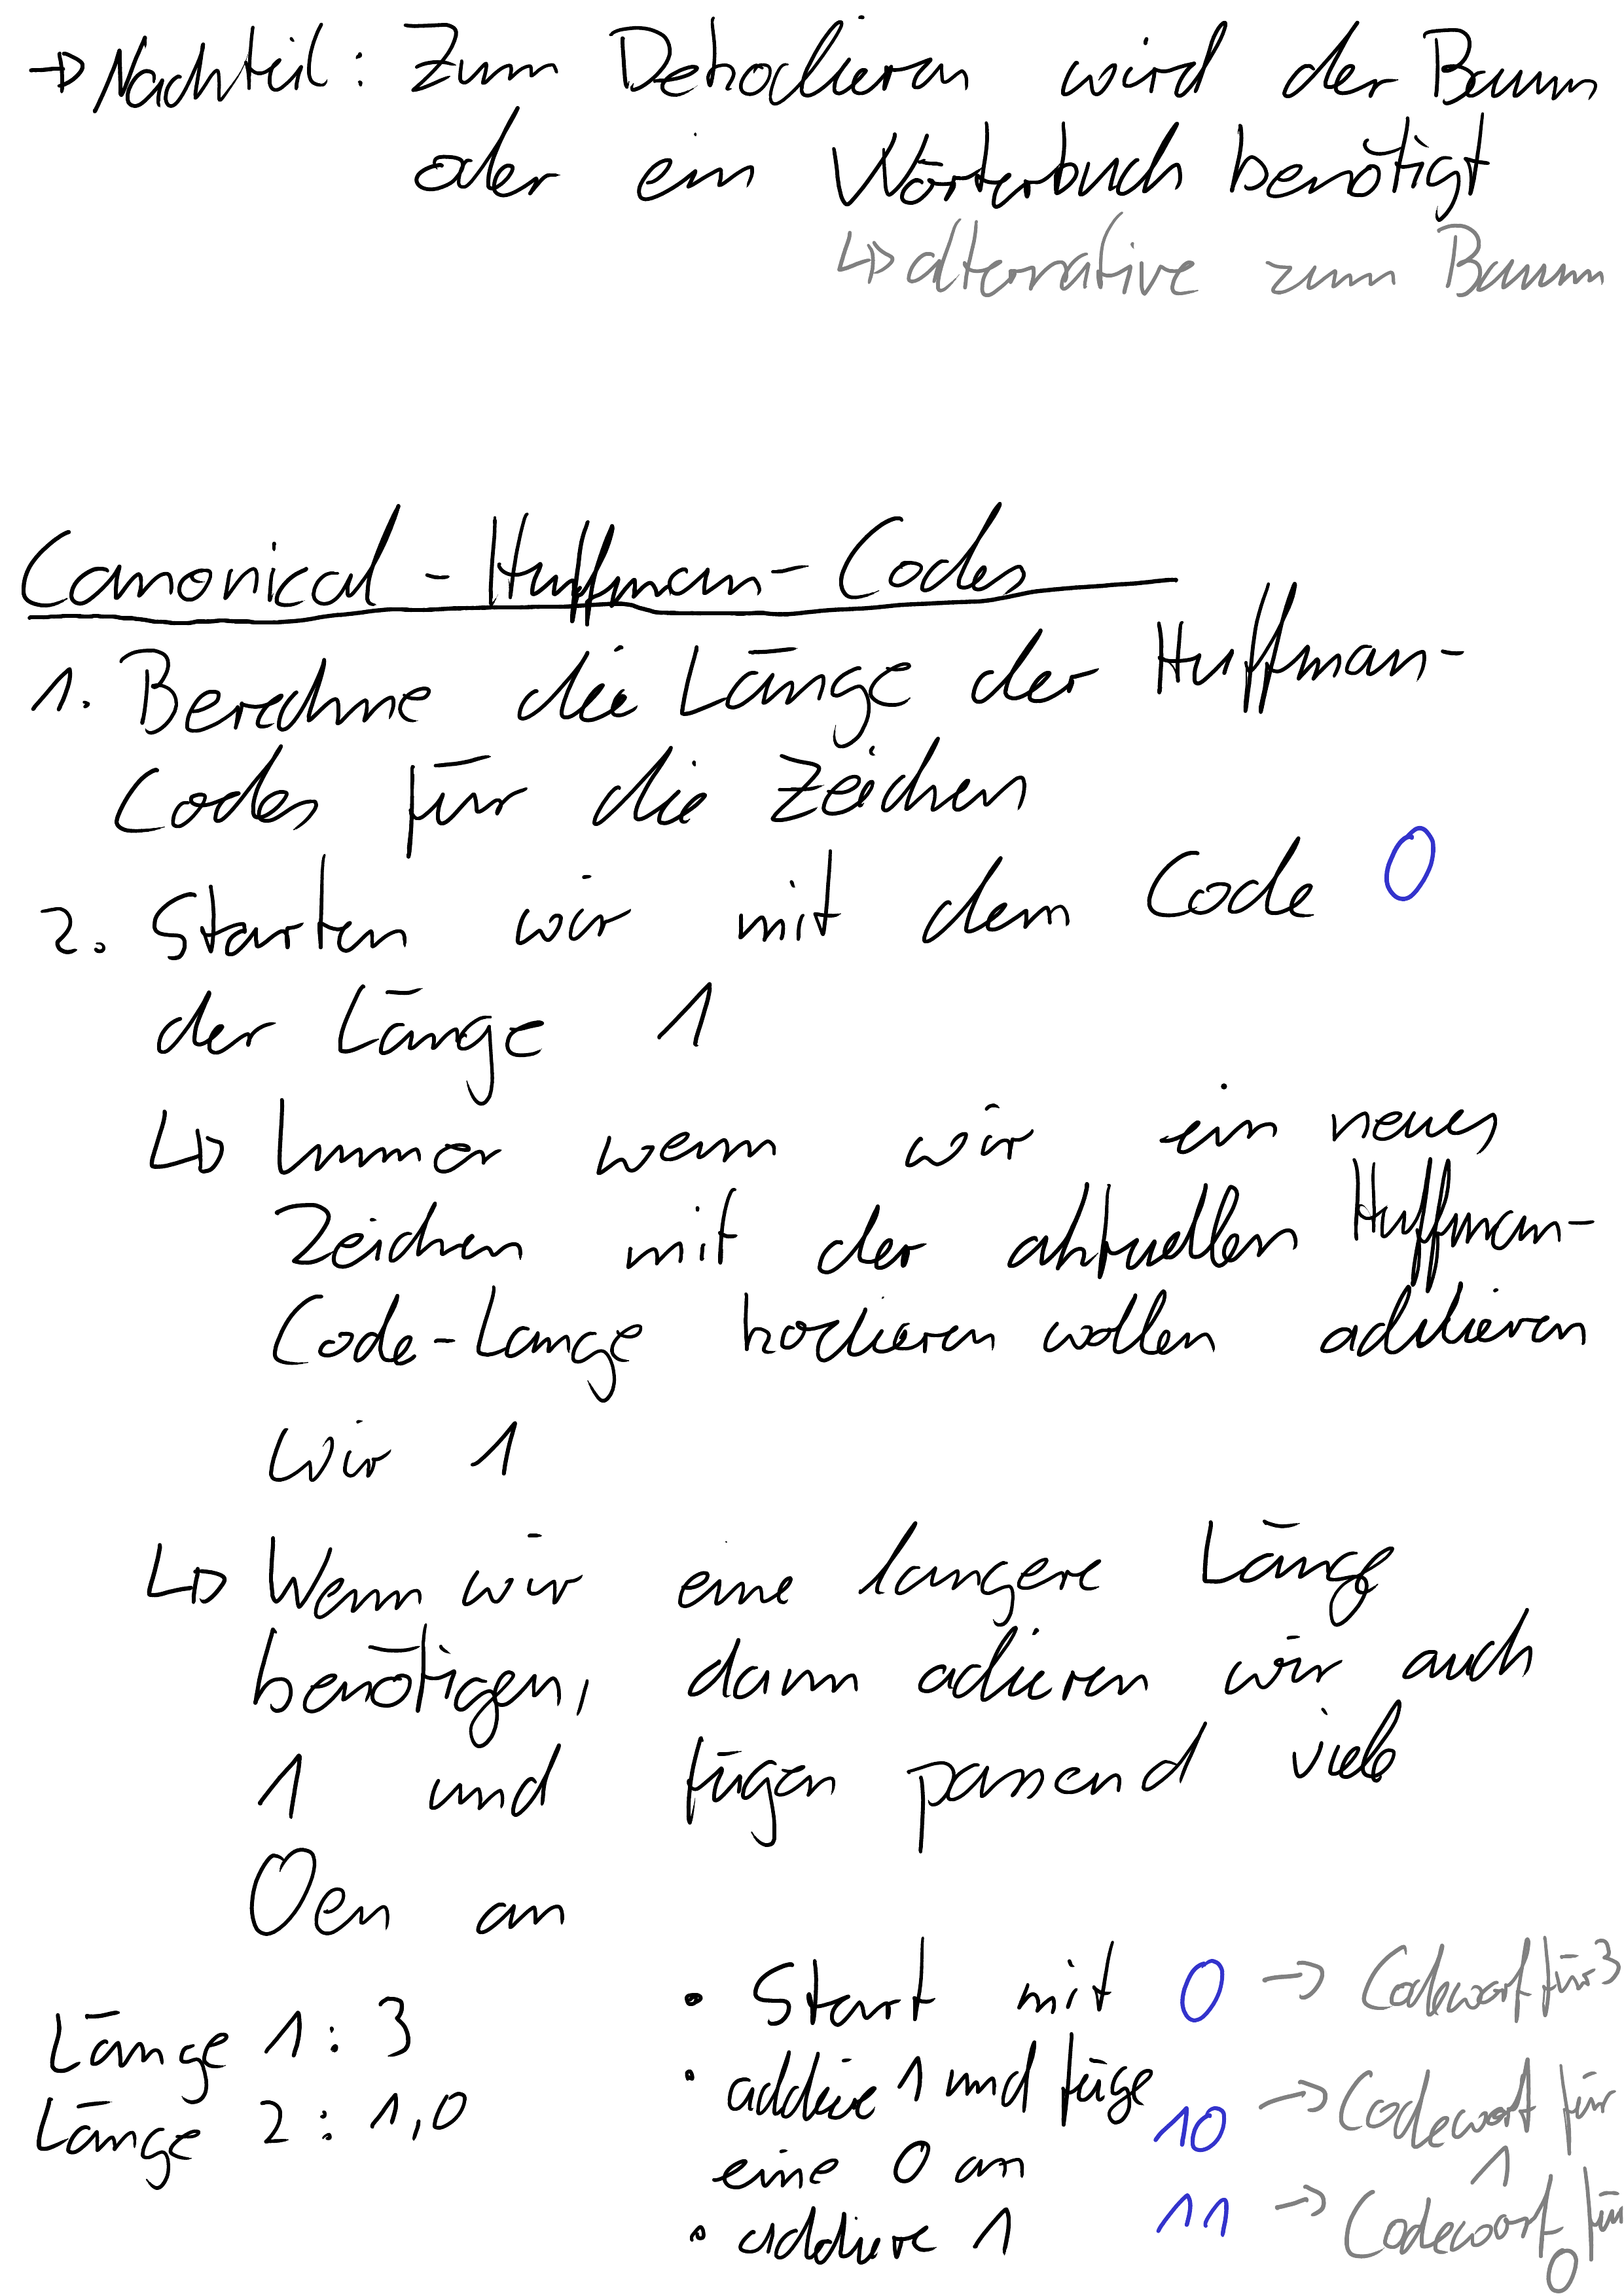 → Nachteil: Zum Dekodieren wird der Baum
oder ein Wörterbuch benötigt
↳ alternative zum Baum
Canonical-Huffman-Codes
1. Berechne die Länge der Huffman-
Codes für die Zeichen
2. Starten wir mit dem Code 0
der Länge 1
↳ Immer wenn wir ein neues
Zeichen mit der aktuellen Huffman-
Code-Länge kodieren wollen addieren
wir 1
↳ Wenn wir eine längere Länge
benötigen, dann adieren wir auch
1 und fügen passend viele
0en an
Länge 1: 3
Länge 2: 1,0
• Start mit 0 → Codewort für 3
• addiere 1 und füge
eine 0 an 10 → Codewort für 1
• addiere 1 11 → Codewort für 0